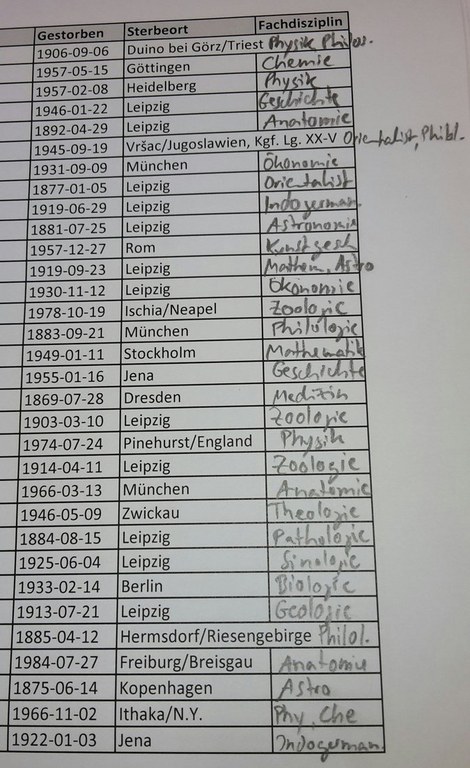 Gestorben Sterbeort Fachdisziplin
1906-09-06 Duino bei Görz/Triest Physik Philos.
1957-05-15 Göttingen Chemie
1957-02-08 Heidelberg Physik
1946-01-22 Leipzig Geschichte
1892-04-29 Leipzig Anatomie
1945-09-19 Vršac/Jugoslawien, Kgf. Lg. XX-V Orientalist, Philol.
1931-09-09 München Ökonomie
1877-01-05 Leipzig Orientalist
1919-06-29 Leipzig Indogerman.
1881-07-25 Leipzig Astronomie
1957-12-27 Rom Kunstgesch
1919-09-23 Leipzig Mathem, Astro
1930-11-12 Leipzig Ökonomie
1978-10-19 Ischia/Neapel Zoologie
1883-09-21 München Philologie
1949-01-11 Stockholm Mathematik
1955-01-16 Jena Geschichte
1869-07-28 Dresden Medizin
1903-03-10 Leipzig Zoologie
1974-07-24 Pinehurst/England Physik
1914-04-11 Leipzig Zoologie
1966-03-13 München Anatomie
1946-05-09 Zwickau Theologie
1884-08-15 Leipzig Pathologie
1925-06-04 Leipzig Sinologie
1933-02-14 Berlin Biologie
1913-07-21 Leipzig Geologie
1885-04-12 Hermsdorf/Riesengebirge Philol.
1984-07-27 Freiburg/Breisgau Anatomie
1875-06-14 Kopenhagen Astro
1966-11-02 Ithaka/N.Y. Phy. Che
1922-01-03 Jena Indogerman.